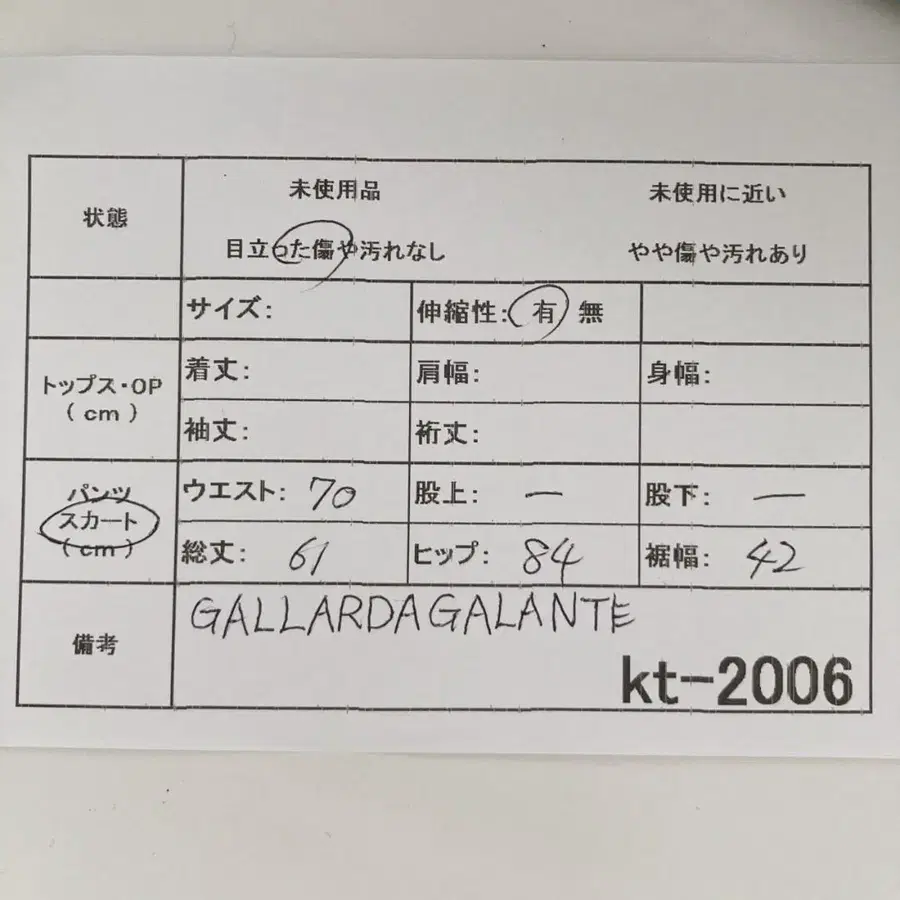 状態
未使用品 未使用に近い
目立った傷や汚れなし やや傷や汚れあり
サイズ: 伸縮性: 有 無
トップス・OP
(cm)
着丈: 肩幅: 身幅:
袖丈: 裄丈:
パンツ
スカート
(cm)
ウエスト: 70 股上: ― 股下: ―
総丈: 61 ヒップ: 84 裾幅: 42
備考
GALLARDAGALANTE
kt-2006